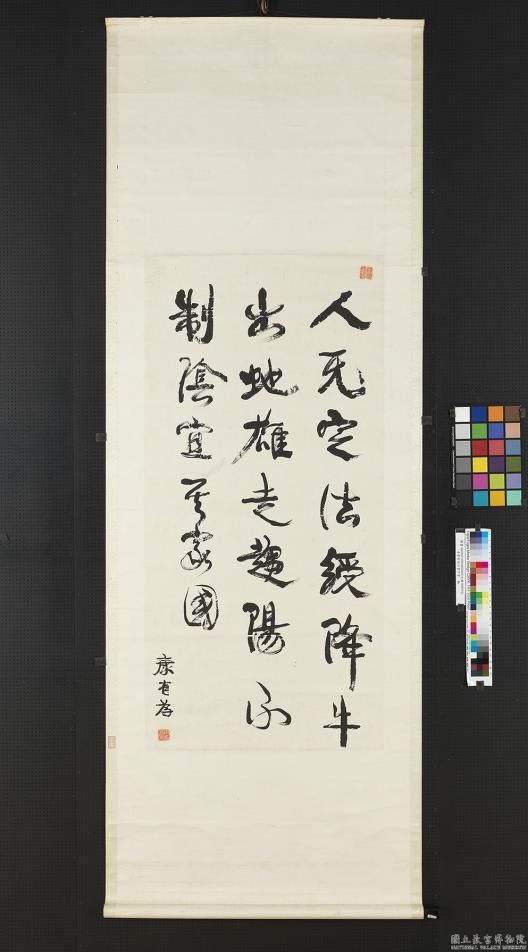 人无定法綬降牛
出虵雄走趨陽不
制陰宜其家國
康有為
國立故宮博物院
NATIONAL PALACE MUSEUM